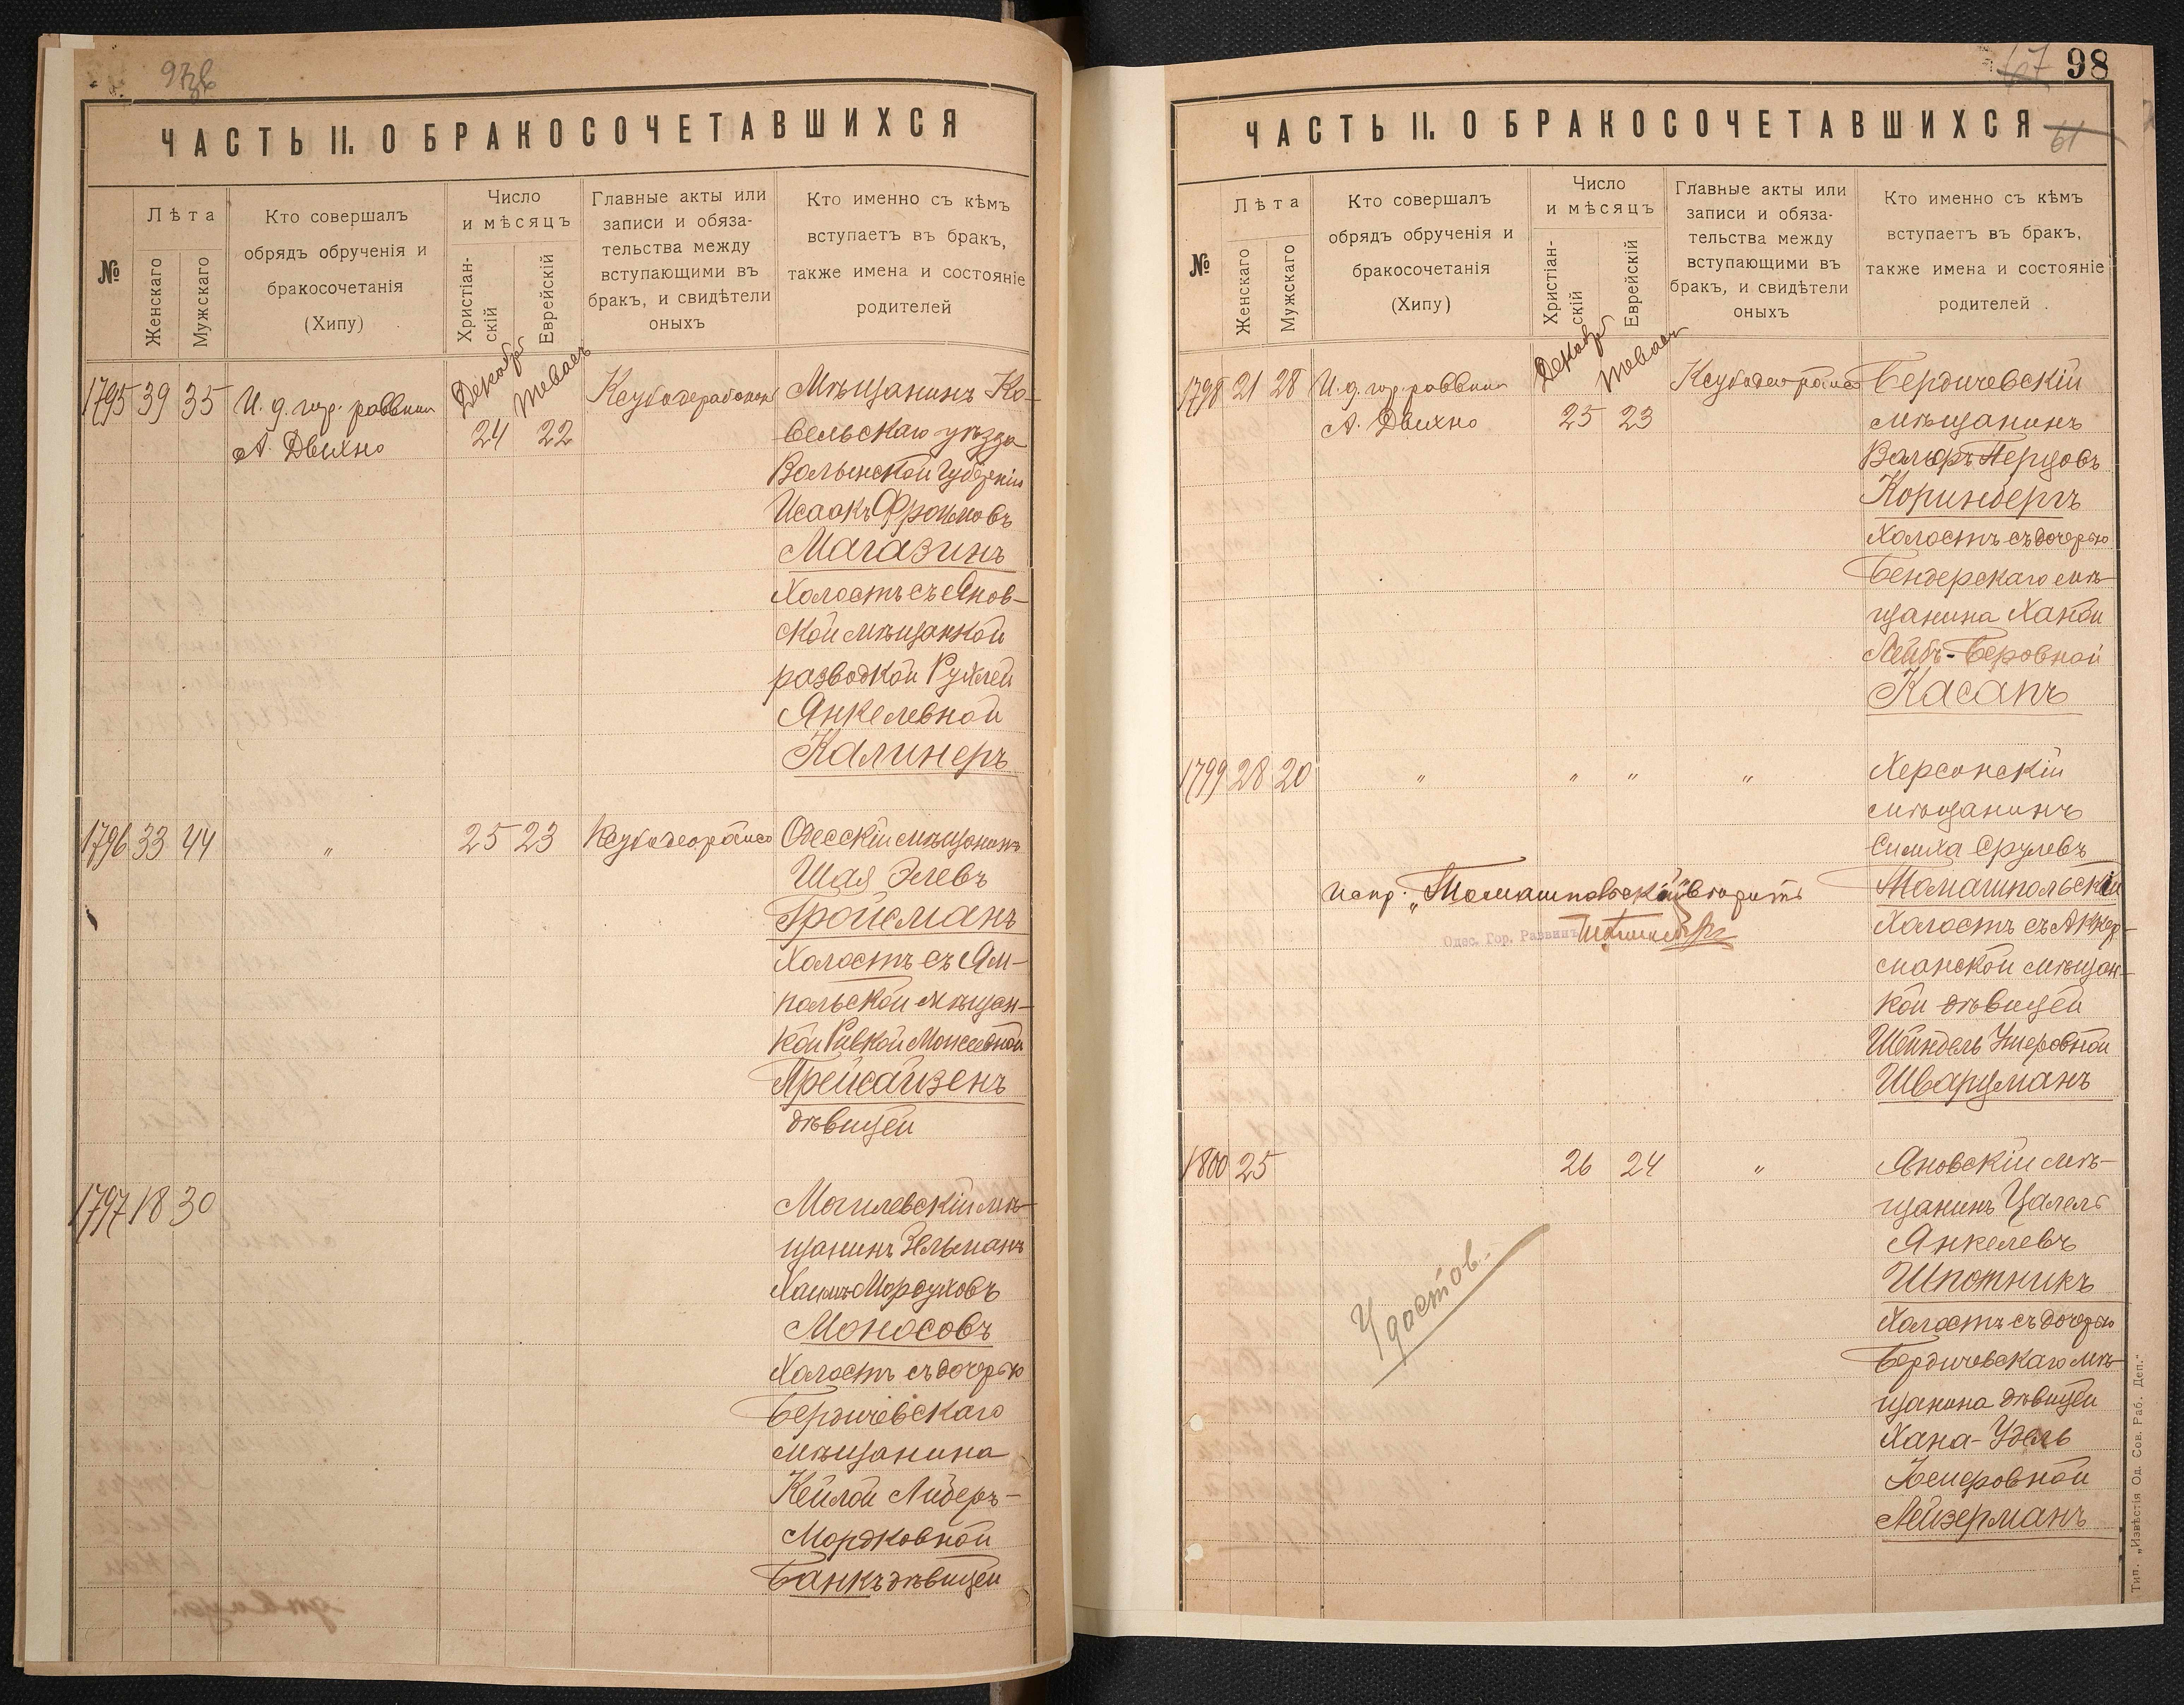 98
ЧАСТЬ II. О БРАКОСОЧЕТАВШИХСЯ
№
Лѣта
Женскаго
Мужскаго
Кто совершалъ
обрядъ обрученія и
бракосочетанія
(Хипу)
Число
и мѣсяцъ
Христіан-
скій
Еврейскій
Главные акты или
записи и обяза-
тельства между
вступающими въ
бракъ, и свидѣтели
оныхъ
Кто именно съ кѣмъ
вступаетъ въ бракъ,
также имена и состояніе
родителей
1795 39 35
И. д. гор. раввина
А. Двихно
24 22
Мѣщанинъ Ко-
вельскаго уѣзда
Волынской Губерніи
Исаакъ Фроимовъ
Магазинъ
Холостъ съ Янов-
ской мѣщанкой
разводкой Рухлей
Янкелевной
Калинеръ
1796 33 44
"
25 23
Одесскій мѣщанинъ
Шая Элевъ
Гройсманъ
Холостъ съ Ям-
польской мѣщан-
кой Ривкой
Прейсайзенъ
дѣвицей
1797 18 30
Могилевскій мѣ-
щанинъ Зельманъ
Хаимъ Мордуховъ
Моносовъ
Холостъ съ дочерью
Бердичевскаго
мѣщанина
Кейлой
Мордковной
Банкъ дѣвицей
ЧАСТЬ II. О БРАКОСОЧЕТАВШИХСЯ
61
№
Лѣта
Женскаго
Мужскаго
Кто совершалъ
обрядъ обрученія и
бракосочетанія
(Хипу)
Число
и мѣсяцъ
Христіан-
скій
Еврейскій
Главные акты или
записи и обяза-
тельства между
вступающими въ
бракъ, и свидѣтели
оныхъ
Кто именно съ кѣмъ
вступаетъ въ бракъ,
также имена и состояніе
родителей
1798 21 28
И. д. гор. раввина
А. Двихно
25 23
Бердичевскій
мѣщанинъ
Перцовъ
Коринбергъ
Холостъ съ дочерью
Бендерскаго мѣ-
щанина Ханой
Лейбъ-Беровной
Касапъ
1799 28 20
" " " "
Херсонскій
мѣщанинъ
Симха Срулевъ
Томашпольскій
Холостъ съ Аккер-
манской мѣщан-
кой дѣвицей
Шейндель Ушеровной
Шварцманъ
испр. „Томашпольскій"
Одес. Гор. Раввинъ
1800 25
26 24
"
Яновскій мѣ-
щанинъ Цалель
Янкелевъ
Шпотникъ
Холостъ съ дочерью
Бердичевскаго мѣ-
щанина дѣвицей
Хана-Удель
Лейзерманъ
Удостов.
Тип. „Извѣстія Од. Сов. Раб. Деп."